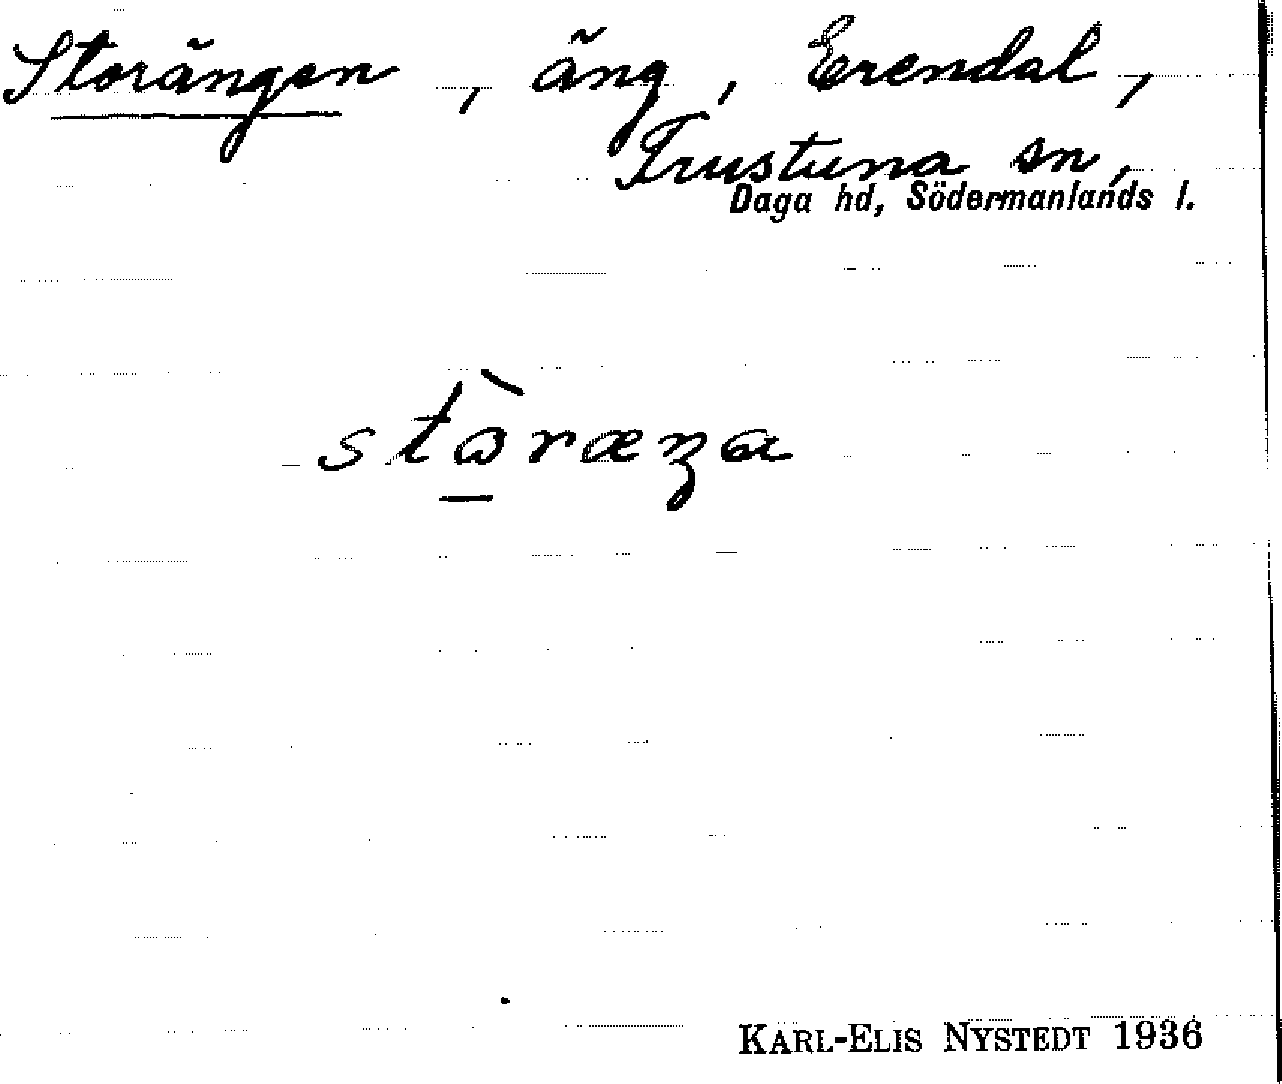 Storängen, äng, Erendal,
Frustuna sn,
Daga hd, Södermanlands l.
stɷ̀ræŋa
KARL-ELIS NYSTEDT 1936